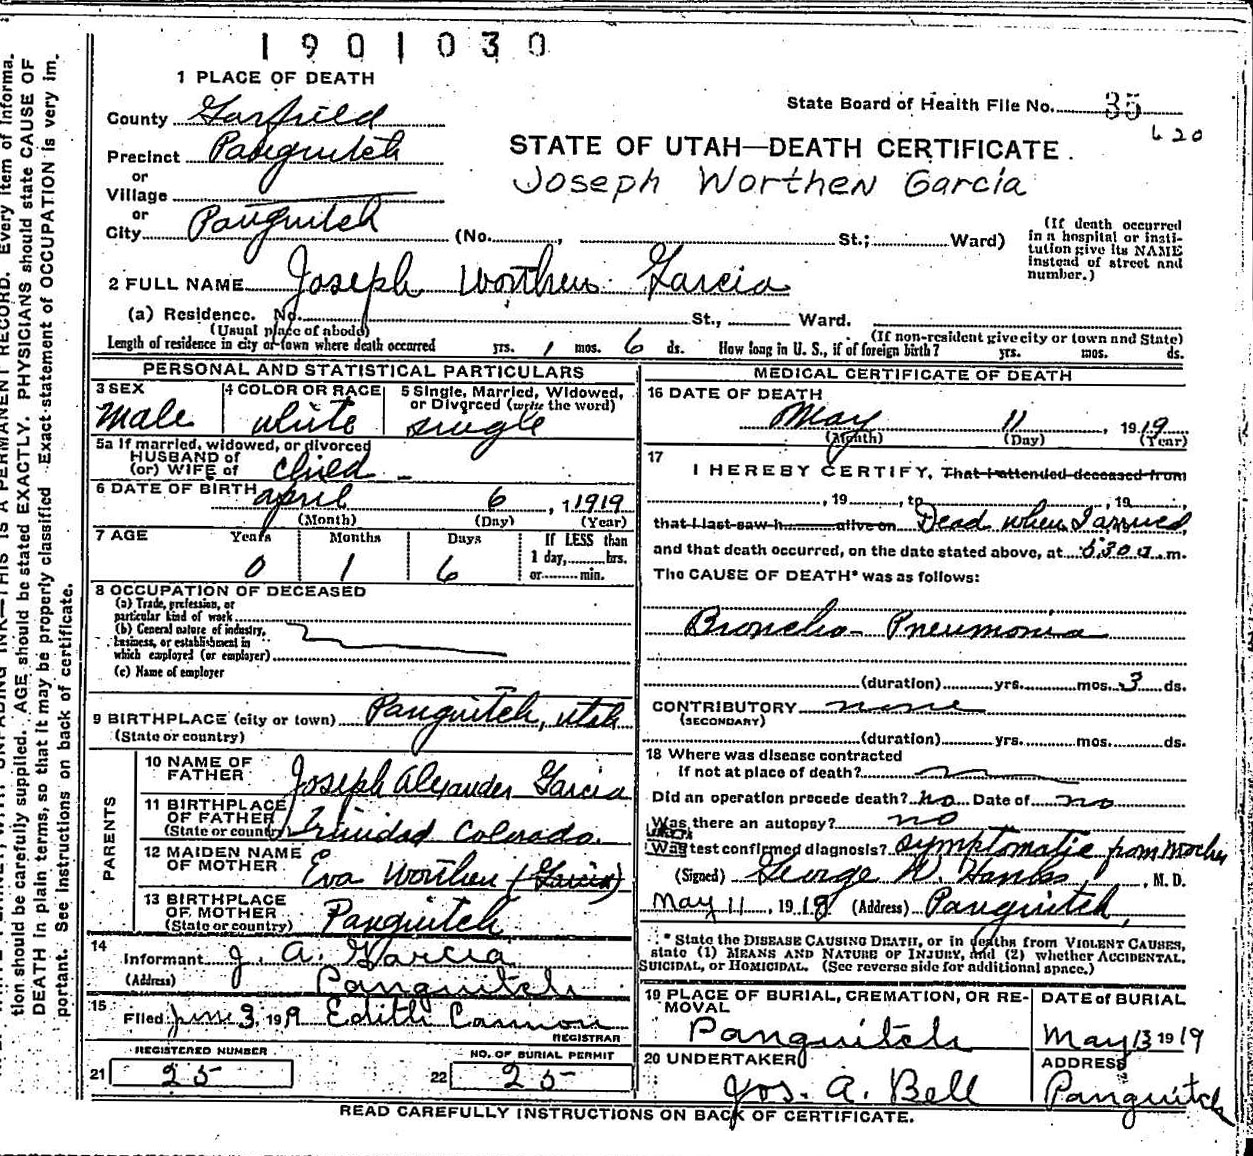 1901030
1 PLACE OF DEATH
State Board of Health File No. 35
620
County Garfield
Precinct Panguitch
or
Village
or
City Panguitch (No. , St.; Ward)
STATE OF UTAH—DEATH CERTIFICATE.
Joseph Worthen Garcia
(If death occurred
in a hospital or insti-
tution give its NAME
instead of street and
number.)
2 FULL NAME Joseph Worthen Garcia
(a) Residence. No. St., Ward.
(Usual place of abode) (If non-resident give city or town and State)
Length of residence in city or town where death occurred yrs. 1 mos. 6 ds. How long in U. S., if of foreign birth? yrs. mos. ds.
PERSONAL AND STATISTICAL PARTICULARS
3 SEX
Male
4 COLOR OR RACE
white
5 Single, Married, Widowed,
or Divorced (write the word)
single
5a If married, widowed, or divorced
HUSBAND of
(or) WIFE of child
6 DATE OF BIRTH april 6, 1919
(Month) (Day) (Year)
7 AGE Years Months Days
0 1 6
If LESS than
1 day, hrs.
or min.
8 OCCUPATION OF DECEASED
(a) Trade, profession, or
particular kind of work
(b) General nature of industry,
business, or establishment in
which employed (or employer)
(c) Name of employer
9 BIRTHPLACE (city or town) Panguitch, utah
(State or country)
PARENTS
10 NAME OF
FATHER Joseph Alexander Garcia
11 BIRTHPLACE
OF FATHER
(State or country) Trinidad Colorado.
12 MAIDEN NAME
OF MOTHER Eva Worthen (Garcia)
13 BIRTHPLACE
OF MOTHER
(State or country) Panguitch
14
Informant J. A. Garcia
(Address) Panguitch
15
Filed June 3, 1919 Edith Cannon
REGISTRAR
REGISTERED NUMBER
21 25
NO. OF BURIAL PERMIT
22 25
MEDICAL CERTIFICATE OF DEATH
16 DATE OF DEATH
May 11, 1919
(Month) (Day) (Year)
17
I HEREBY CERTIFY, That I attended deceased from
, 19 , to , 19 ,
that I last saw h alive on Dead when I arrived,
and that death occurred, on the date stated above, at 530 a m.
The CAUSE OF DEATH* was as follows:
Broncho- Pneumonia
(duration) yrs. mos. 3 ds.
CONTRIBUTORY none
(SECONDARY)
(duration) yrs. mos. ds.
18 Where was disease contracted
If not at place of death?
Did an operation precede death? no Date of no
Was there an autopsy? no
test confirmed diagnosis? symptomatic from mother
(Signed) George W. Hanks, M. D.
May 11, 1918 (Address) Panguitch,
* State the DISEASE CAUSING DEATH, or in deaths from VIOLENT CAUSES,
state (1) MEANS AND NATURE OF INJURY, and (2) whether ACCIDENTAL,
SUICIDAL, or HOMICIDAL. (See reverse side for additional space.)
19 PLACE OF BURIAL, CREMATION, OR RE-
MOVAL
Panguitch
DATE of BURIAL
May 13 1919
20 UNDERTAKER
Jos. A. Bell
ADDRESS
Panguitch
READ CAREFULLY INSTRUCTIONS ON BACK OF CERTIFICATE.
THIS IS A PERMANENT RECORD. Every item of informa-
tion should be carefully supplied. AGE should be stated EXACTLY. PHYSICIANS should state CAUSE OF
DEATH in plain terms, so that it may be properly classified. Exact statement of OCCUPATION is very im-
portant. See Instructions on back of certificate.